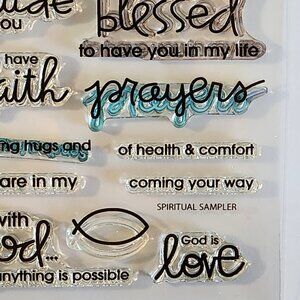 blessed
you
to have you in my life
have
faith
prayers
hugs and
of health & comfort
are in my
coming your way
with
SPIRITUAL SAMPLER
God is
love
anything is possible